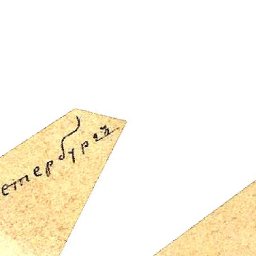 етербургъ